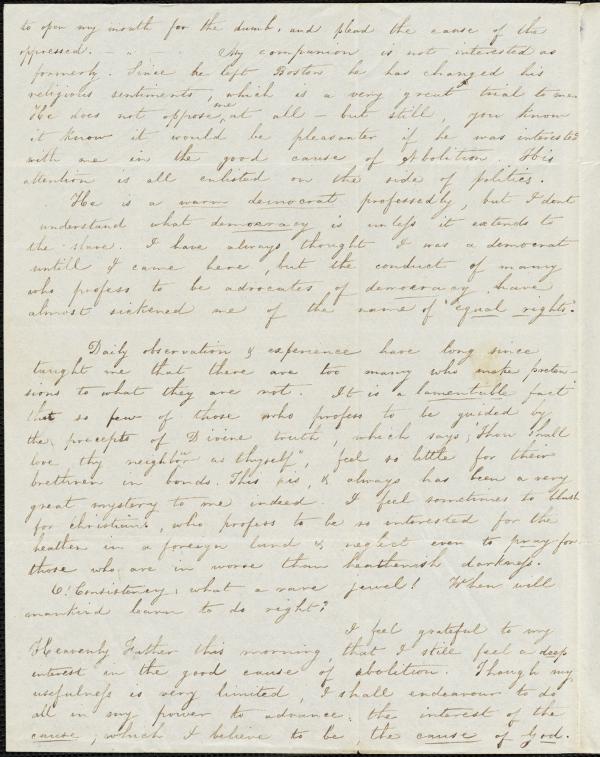 to open my mouth for the dumb, and plead the cause of the
oppressed. - " - My companion is not interested as
formerly. Since he left Boston he has changed his
religious sentiments, which is a very great trial to me.
He does not oppose me, at all - but still, you know
it know it would be pleasanter if he was interested
with me in the good cause of Abolition. His
attention is all enlisted on the side of politics.
He is a warm democrat professedly, but I dont
understand what democracy is unless it extends to
the slave. I have always thought I was a democrat
untill I came here, but the conduct of many
who profess to be advocates of democracy have
almost sickened me of the name of "equal rights".
Daily observation & experience have long since
taught me that there are too many who make preten-
sions to what they are not. It is a lamentable fact
that so few of those who profess to be guided by
the precepts of Divine truth, which says, "Thou shall
love thy neighbour as thyself", feel so little for their
brethren in bonds. This is, & always has been a very
great mystery to me indeed. I feel sometimes to blush
for christians, who profess to be so interested for the
heathen in a foreign land & neglect even to pray for
those who are in worse than heathenish darkness.
O! Consistency, what a rare jewel! When will
mankind learn to do right?
I feel grateful to my
Heavenly Father this morning that I still feel a deep
interest in the good cause of abolition. Though my
usefulness is very limited, I shall endeavour to do
all in my power to advance the interest of the
cause, which I believe to be the cause of God.